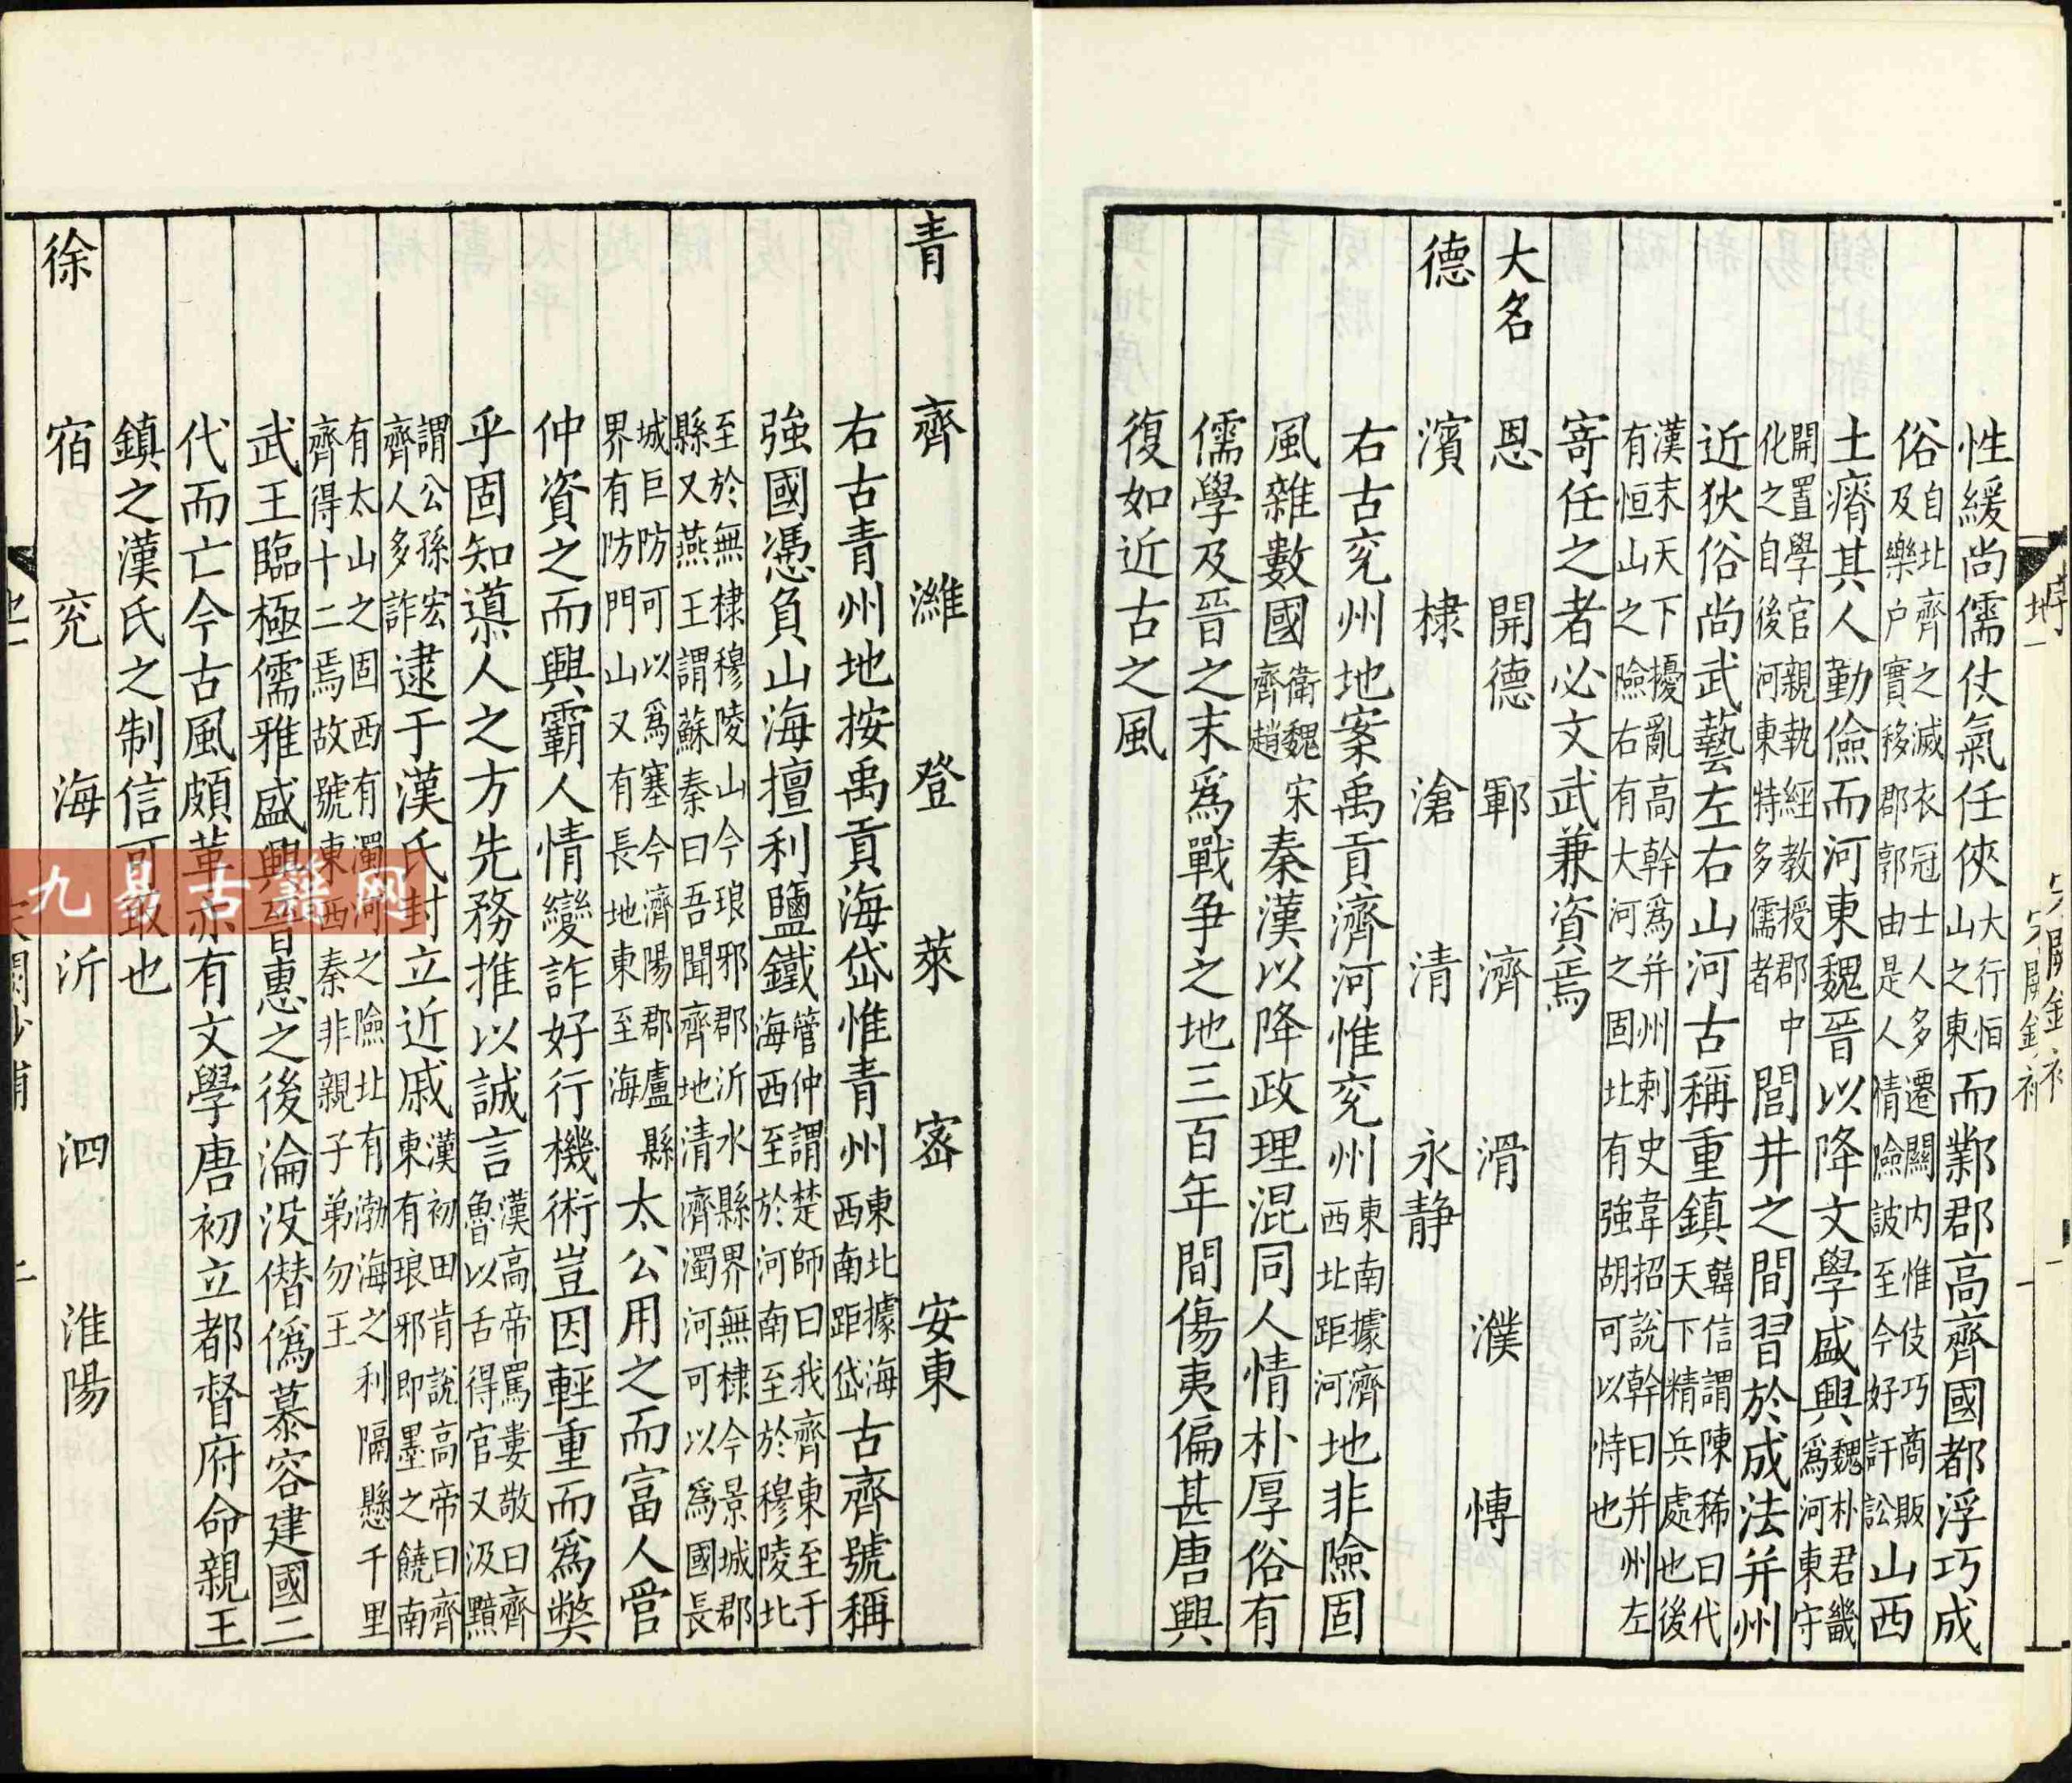 性緩尚儒仗氣任俠大行恒山之東而鄴郡高齊國都浮巧成
俗自北齊之滅衣冠士人多遷關内惟伎巧商販及樂户實移郡郭由是人情險詖至今好訐訟山西
土瘠其人勤儉而河東魏晉以降文學盛興魏朴君畿爲河東守
開置學官親執經教授郡中化之自後河東特多儒者閭井之間習於成法并州
近狄俗尚武藝左右山河古稱重鎮韓信謂陳稀曰代天下精兵處也後
漢末天下擾亂高幹爲并州刺史韋招説幹曰并州左有恒山之險右有大河之固北有強胡可以恃也
寄任之者必文武兼資焉
大名 恩 開德 鄆 濟 滑 濮 博
德 濱 棣 滄 清 永静
右古兖州地案禹貢濟河惟兖州東南據濟西北距河地非險固
風雜數國衛魏宋齊趙秦漢以降政理混同人情朴厚俗有
儒學及晉之末爲戰争之地三百年間傷夷偏甚唐興
復如近古之風
青 齊 濰 登 萊 密 安東
右古青州地按禹貢海岱惟青州東北據海西南距岱古齊號稱
強國憑負山海擅利鹽鐵管仲謂楚師曰我齊東至于海西至於河南至於穆陵北
至於無棣穆陵山今琅邪郡沂水縣界無棣今景城郡縣又燕王謂蘇秦曰吾聞齊地清濟濁河可以爲國長
城巨防可以爲塞今濟陽郡盧縣界有防門山又有長地東至海太公用之而富人管
仲資之而興霸人情變詐好行機術豈因輕重而爲弊
乎固知導人之方先務推以誠言漢高帝罵婁敬曰齊魯以舌得官又汲黯
謂公孫宏齊人多詐逮于漢氏封立近戚漢初田肯説高帝曰齊東有琅邪即墨之饒南
有太山之固西有濁河之險北有渤海之利隔懸千里齊得十二焉故號東西秦非親子弟勿王
武王臨極儒雅盛興晉惠之後淪没僭僞慕容建國二
代而亡今古風頗革亦有文學唐初立都督府命親王
鎮之漢氏之制信可取也
徐 宿 兖 海 沂 泗 淮陽
九易古籍网